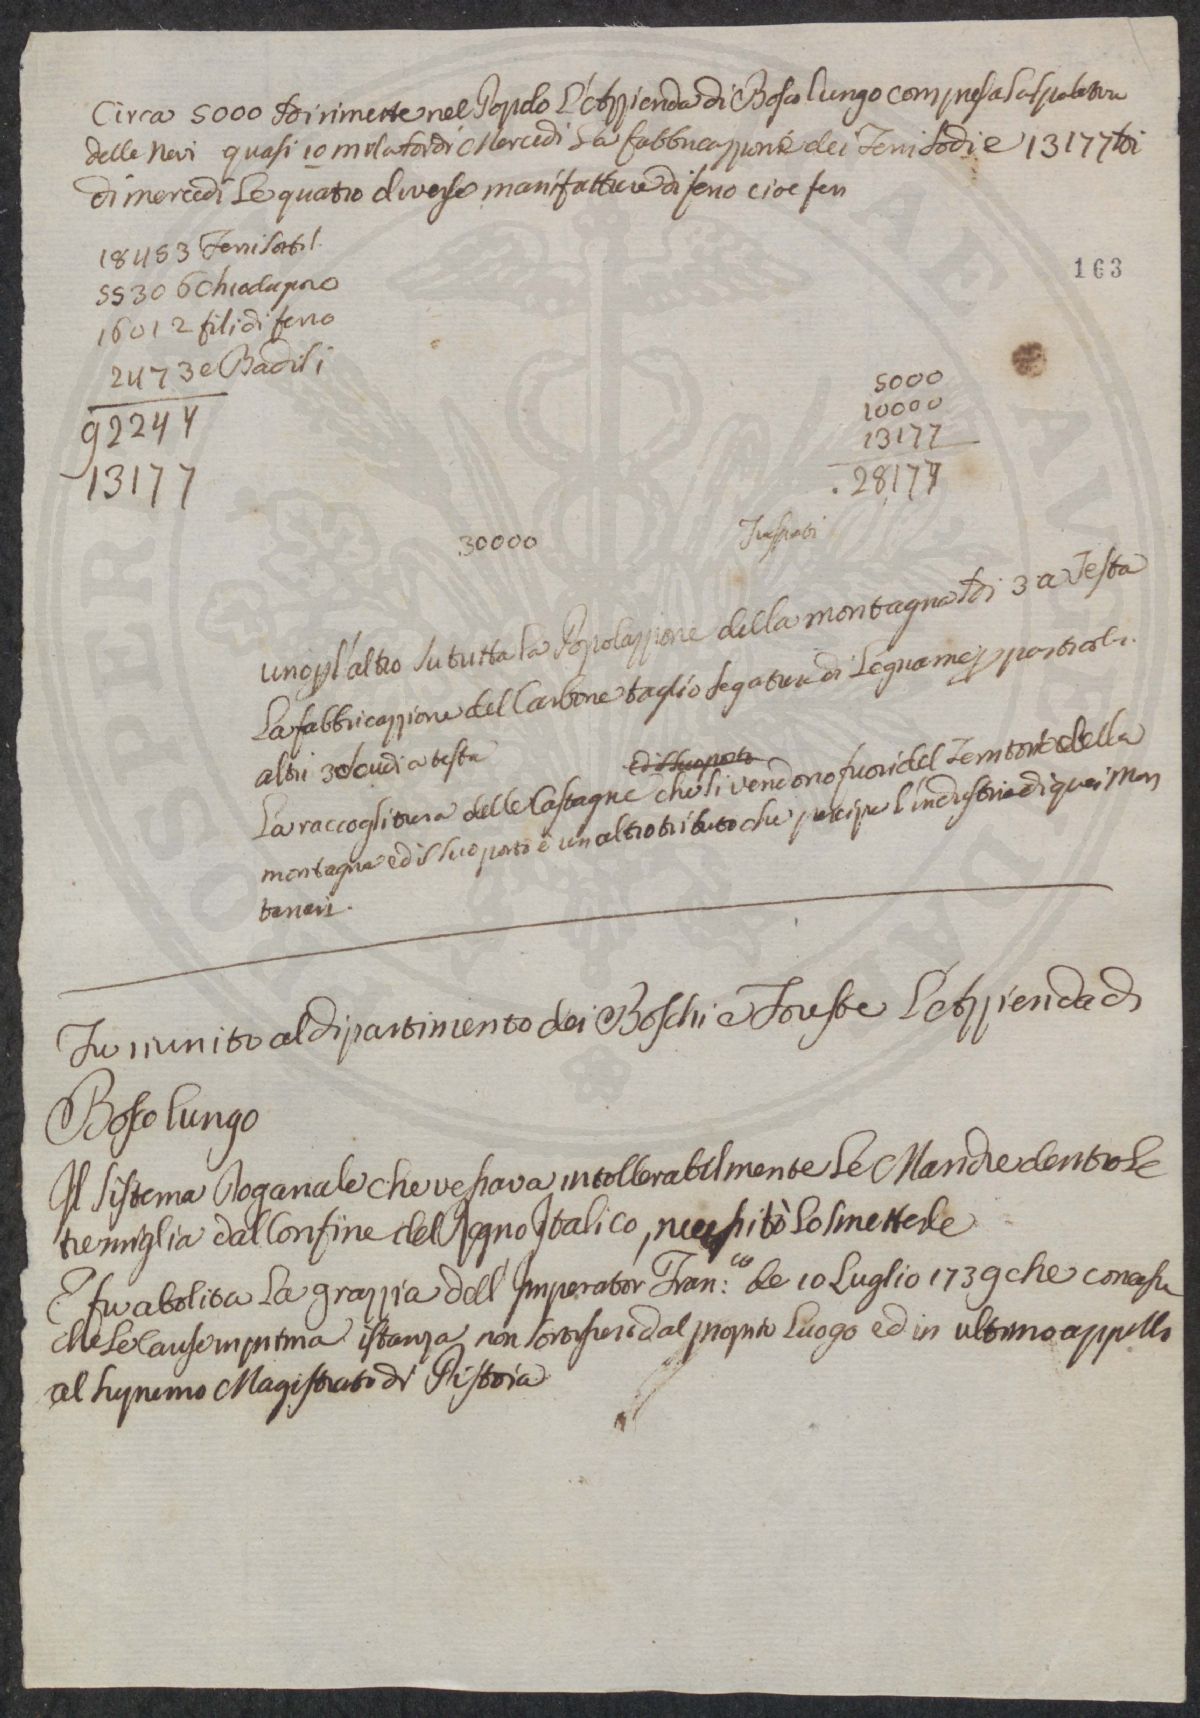 Circa 5000 di rimette nel Popolo L'Azzienda di Bosco Lungo compresa la spalatura
delle Nevi quasi 10 mila di Mercedi La fabbricazzione dei Ferri Sodi e 13177
di mercedi Le quatro diverse manifatture di ferro cioe ferr
18453 Ferri sottil
55306 Chioderia
16012 fili di ferro
2473 e Badili
92244
13177
163
5000
10000
13177
28177
30000
uno p l'altro su tutta la Popolazzione della montagna di 3 a Testa
La fabbricazzione del Carbone taglio segatura di Legname
altri 3 scudi a testa
ed il suo porto
La raccoglitura delle Castagne che si vendono fuori del Territorio della
montagna ed il suo porto è un altro tributo che percipe l'industria di quei Mon
tanari.
Fu riunito al dipartimento dei Boschi e Foreste L'Azzienda di
Bosco Lungo
Il sistema Doganale che vessava intollerabilmente Le Mandre dentro Le
tre miglia dal Confine del Regno Italico, necessitò Lo smetterle
E fu abolita La grazzia dell' Imperator Fran:co de 10 Luglio 1739 che concesse
che Le Cause in prima istanza non sortissero dal proprio Luogo ed in ultimo appello
al supremo Magistrato di Pistoia